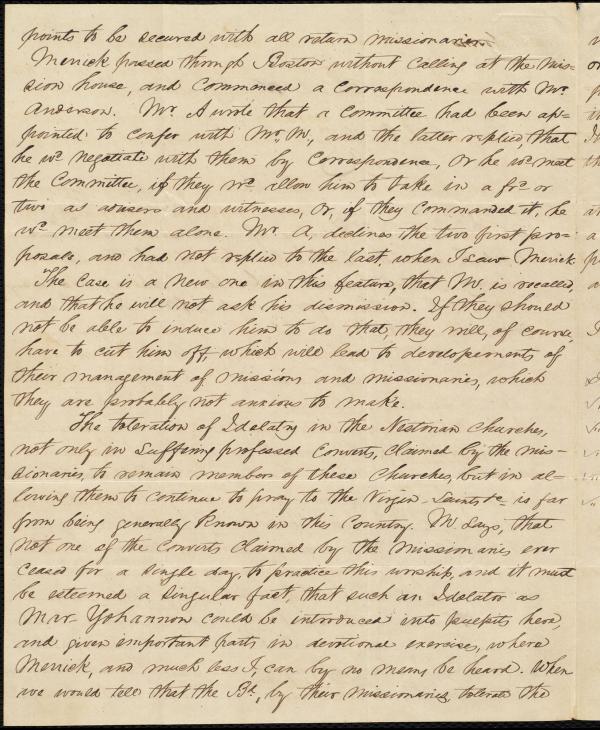 points to be secured with all return missionaries.
Merrick passed through Boston without calling at the mis=
sion house, and commenced a correspondence with Mr.
Anderson. Mr. A wrote that a Committee had been ap=
pointed to confer with Mr. M., and the latter replied, that
he wd. negotiate with them by Correspondence, or he wd. meet
the Committee, if they wd. allow him to take in a fr. or
two as advisers and witnesses, or, if they commanded it, he
wd. meet them alone. Mr. A, declines the two first pro=
posals, and had not replied to the last, when I saw Merrick
The case is a new one in this feature, that M. is recalled,
and that he will not ask his dismission. If they should
not be able to induce him to do that, they will, of course,
have to cut him off, which will lead to developements of
their management of missions and missionaries, which
they are probably not anxious to make.
The toleration of Idolatry in the Nestorian Churches,
not only in suffering professed Converts, claimed by the mis=
sionaries, to remain members of these Churches, but in al=
lowing them to continue to pray to the Virgin, Saints &c. is far
from being generally known in this Country. M. says, that
not one of the Converts claimed by the missionaries ever
ceased for a single day, to practice this worship, and it must
be esteemed a singular fact, that such an Idolator as
Mar Yohannon could be introduced into pulpits here,
and given important parts in devotional exercises, where
Merrick, and much less I, can by no means be heard. When
we would tell that the Bd., by their missionaries, tolerate the